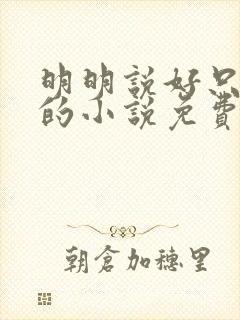 明明說好只
的小說免費
朝倉加穗里